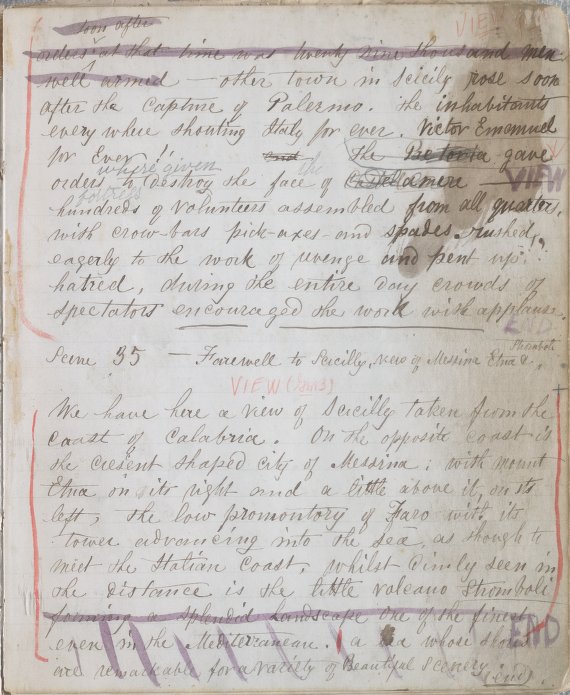 soon after
VIEW
orders at that time was twenty nine thousand men
well armed — other town in Scicily rose soon
after the Capture of Palermo. the inhabitants
every where shouting Italy for ever. Victor Emanuel
for Ever!! the gave
where given the
orders to destroy the face of Castellamere — VIEW
hundreds of volunteers assembled from all quarters,
with crow-bars pick-axes and spades rushed,
eagerly to the work of revenge and pent up
hatred, during the entire day crowds of
spectators encouraged the work with applause.
END
Scene 35 — Farewell to Scicilly, view of Messina Etna & Stromboli
VIEW
We have here a view of Scicilly taken from the
coast of Calabria. On the opposite coast is
the cresent shaped city of Messina: with mount
Etna on its right and a little above it, on its
left, the low promontory of Faro with its
tower advancing into the sea, as though to
meet the Italian Coast, whilst dimly seen in
the distance is the little volcano Stromboli
forming a splendid Landscape One of the finest
even in the Mediterranean. a sea whose shores
END
are remarkable for a variety of Beautiful Scenery (end)